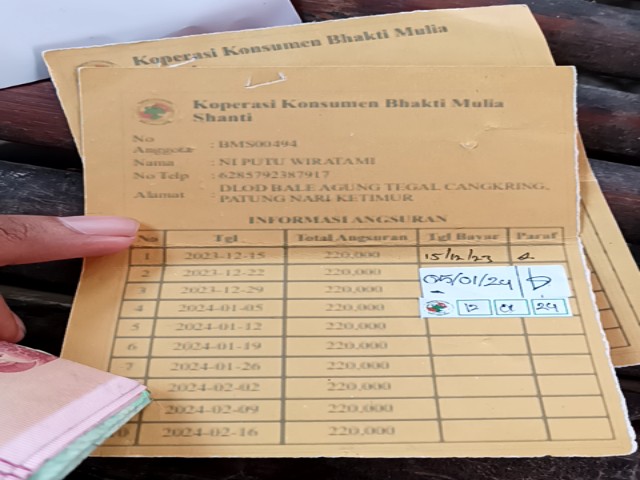 Koperasi Konsumen Bhakti Mulia
Koperasi Konsumen Bhakti Mulia
Shanti
No
Anggota : BMS00494
Nama : NI PUTU WIRATAMI
No Telp : 6285792387917
Alamat : DLOD BALE AGUNG TEGAL CANGKRING,
PATUNG NARI KETIMUR
INFORMASI ANGSURAN
No Tgl Total Angsuran Tgl Bayar Paraf
1 2023-12-15 220,000 15/12/23
2 2023-12-22 220,000 05/01/24
3 2023-12-29 220,000
4 2024-01-05 220,000 12 01 24
5 2024-01-12 220,000
6 2024-01-19 220,000
7 2024-01-26 220,000
2024-02-02 220,000
2024-02-09 220,000
2024-02-16 220,000